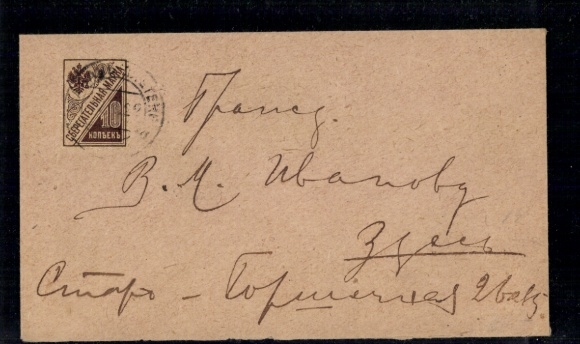 СБЕРЕГАТЕЛЬНАЯ МАРКА
10
КОПѢЕКЪ
Гражд.
В. М. Иванову
Здесь
Старо - Горшечная